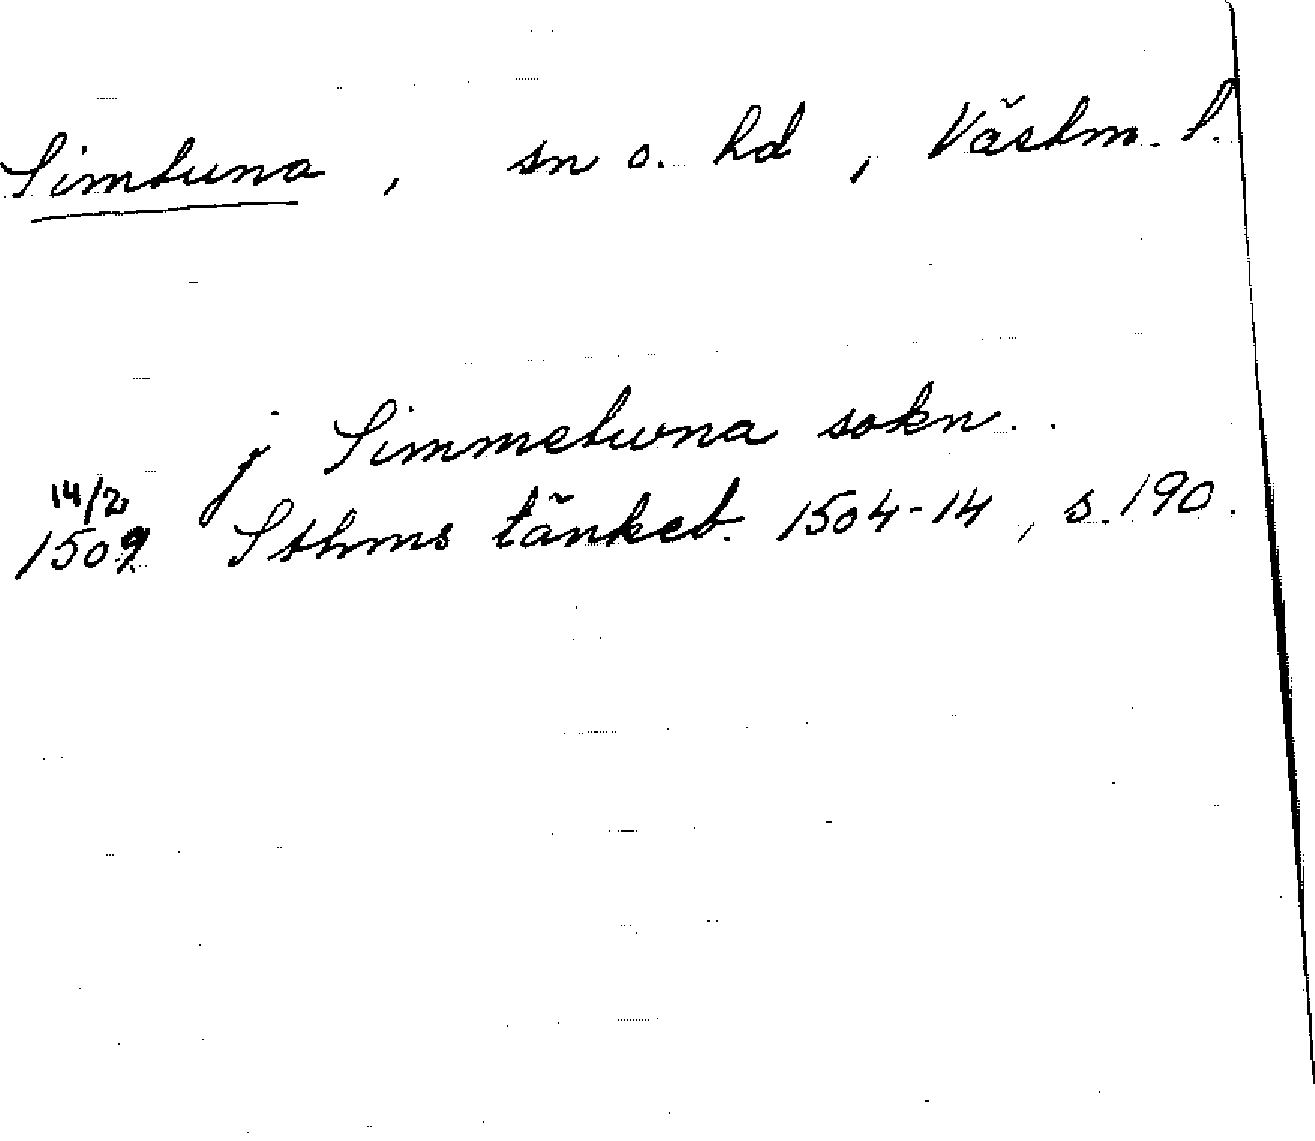 Simtuna, sn o. hd, Västm. l.
j Simmetuna sokn.
14/2
1509 Sthms tänkeb. 1504-14, s. 190.